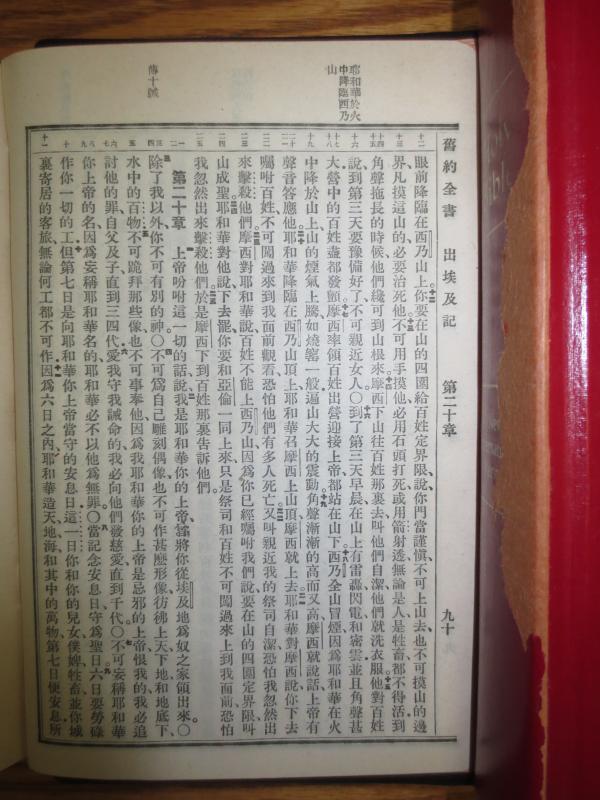 耶和華於火
中降臨西乃
山
傳十誡
舊約全書 出埃及記 第二十章 九十
眼前降臨在西乃山上你要在山的四圍給百姓定界限說你門當謹愼不可上山去也不可摸山的邊
界凡摸這山的必要治死他不可用手摸他必用石頭打死或用箭射透無論是人是牲畜都不得活到
角聲拖長的時候他們纔可到山根來摩西下山往百姓那裏去叫他們自潔他們就洗衣服他對百姓
說到第三天要豫備好了不可親近女人〇到了第三天早晨在山上有雷轟閃電和密雲並且角聲甚
大營中的百姓盡都發顫摩西率領百姓出營迎接上帝都站在山下西乃全山冒煙因爲耶和華在火
中降於山上山的煙氣上騰如燒窰一般遍山大大的震動角聲漸漸的高而又高摩西就說話上帝有
聲音答應他耶和華降臨在西乃山頂上耶和華召摩西上山頂摩西就上去耶和華對摩西說你下去
囑咐百姓不可闖過來到我面前觀看恐怕他們有多人死亡又叫親近我的祭司自潔恐怕我忽然出
來擊殺他們摩西對耶和華說百姓不能上西乃山因爲你已經囑咐我們說要在山的四圍定界限叫
山成聖耶和華對他說下去罷你要和亞倫一同上來只是祭司和百姓不可闖過來上到我面前恐怕
我忽然出來擊殺他們於是摩西下到百姓那裏告訴他們
第二十章 上帝吩咐這一切的話說我是耶和華你的上帝當將你從埃及地爲奴之家領出來〇
除了我以外你不可有別的神〇不可爲自己雕刻偶像也不可作甚麼形像彷彿上天下地和地底下
水中的百物不可跪拜那些像也不可事奉他因爲我耶和華你的上帝是忌邪的上帝恨我的我必追
討他的罪自父及子直到三四代愛我守我誡命的我必向他們發慈愛直到千代〇不可妄稱耶和華
你上帝的名因爲妄稱耶和華名的耶和華必不以他爲無罪〇當記念安息日守爲聖日六日要勞碌
作你一切的工但第七日是向耶和華你上帝當守的安息日這一日你和你的兒女僕婢牲畜並你城
裏寄居的客旅無論何工都不可作因爲六日之內耶和華造天地海和其中的萬物第七日便安息所